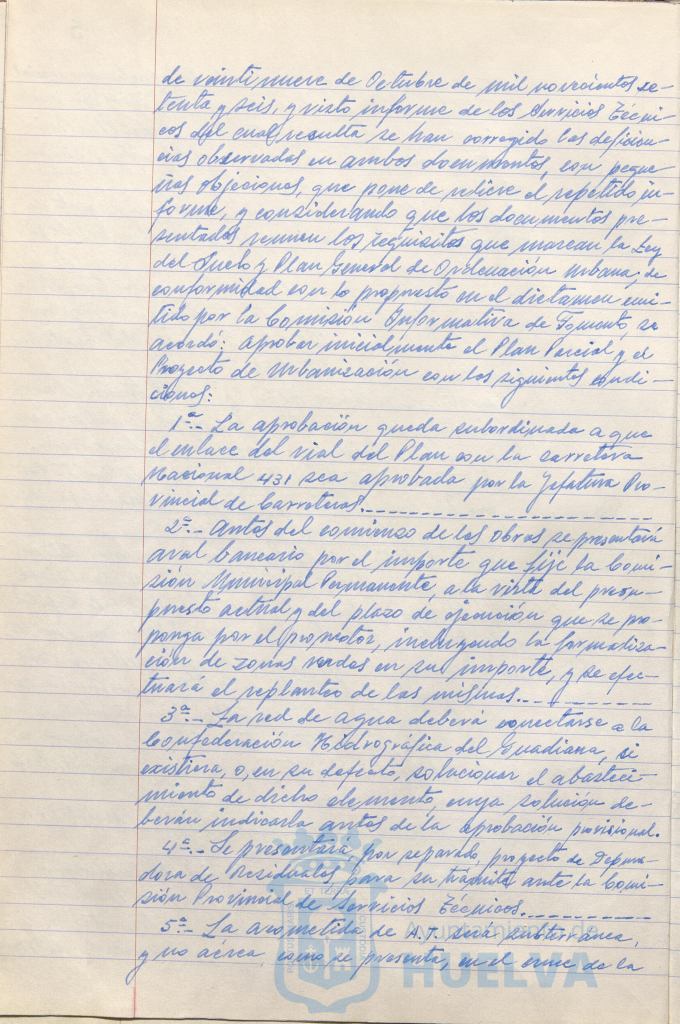 de veintinueve de Octubre de mil novecientos se-
tenta y seis, y visto informe de los Servicios Técni-
cos del cual resulta se han corregido las deficien-
cias observadas en ambos documentos, con peque-
ñas objeciones, que pone de relieve el repetido in-
forme, y considerando que los documentos pre-
sentados reunen los requisitos que marcan la Ley
del Suelo y Plan General de Ordenación Urbana; de
conformidad con lo propuesto en el dictamen emi-
tido por la Comisión Informativa de Fomento, se
acordó: aprobar inicialmente el Plan Parcial y el
Proyecto de Urbanización con las siguientes condi-
ciones:
1ª.- La aprobación queda subordinada a que
el enlace del vial del Plan con la carretera
Nacional 431 sea aprobada por la Jefatura Pro-
vincial de Carreteras.
2ª.- Antes del comienzo de las obras se presentará
aval bancario por el importe que fije la Comi-
sión Municipal Permanente, a la vista del presu-
puesto actual y del plazo de ejecución que se pro-
ponga por el promotor, incluyendo la formaliza-
ción de zonas verdes en su importe, y se efec-
tuará el replanteo de las mismas.
3ª.- La red de agua deberá conectarse a la
Confederación Hidrográfica del Guadiana, si
existiera, o, en su defecto, solucionar el abasteci-
miento de dicho elemento, cuya solución de-
berán indicarla antes de la aprobación provisional.
4ª.- Se presentará, por separado, proyecto de Depura-
dora de Residuales, para su trámite ante la Comi-
sión Provincial de Servicios Técnicos.
5ª.- La acometida de A.T. será subterránea,
y no aérea, como se presenta, en el cruce de la
Ayuntamiento de
HUELVA